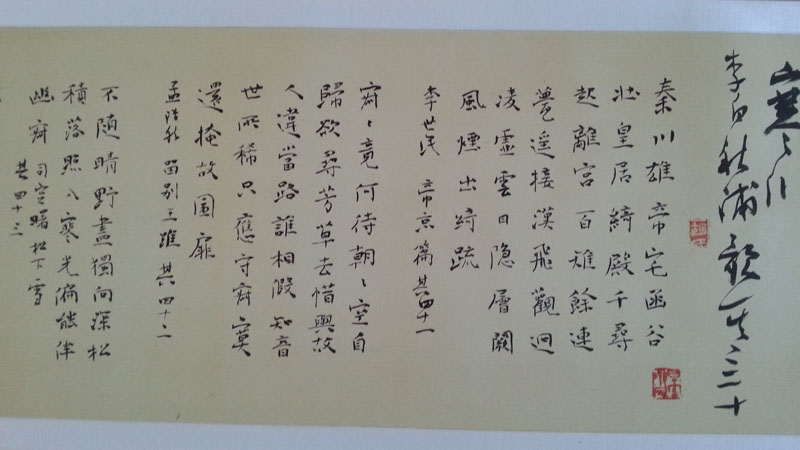 寒川
李白秋浦歌其三十
秦川雄帝宅函谷
壮皇居綺殿千尋
起離宮百雉餘連
甍遥接漢飛觀迥
凌虚雲日隐層闕
風煙出綺疏
李世民 帝京篇其四十一
寂々竟何待朝々空自
歸欲尋芳草去惜與故
人違當路誰相假知音
世所稀只應守寂寞
還掩故園扉
孟浩然 留别王維 其四十二
不随晴野盡獨向深松
積落照入寒光偏能伴
幽齋 司空曙 松下雪
其四十三